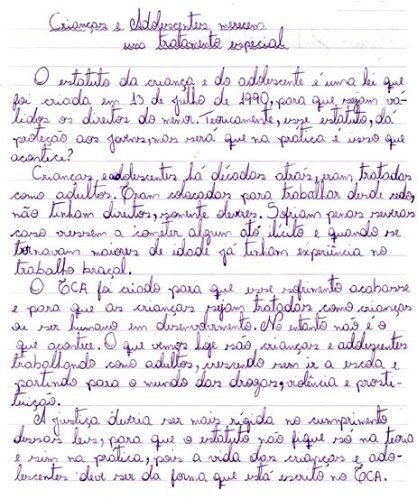 Crianças e Adolescentes merecem
um tratamento especial
O estatuto da criança e do adolescente é uma lei que
foi criada em 13 de julho de 1990, para que sejam vá-
lidos os direitos do menor. Teoricamente, esse estatuto, dá
proteção aos jovens, mas será que na prática é isso que
acontece?
Crianças e adolescentes há décadas atrás, eram tratadas
como adultos. Eram colocadas para trabalhar desde cedo,
não tinham direitos, somente deveres. Sofriam penas severas
caso viessem a cometer algum ato ilícito e quando se
tornavam maiores de idade já tinham experiência no
trabalho braçal.
O ECA foi criado para que esse sofrimento acabasse
e para que as crianças sejam tratadas como crianças
ou ser humano em desenvolvimento. No entanto não é o
que acontece. O que vemos hoje são, crianças e adolescentes
trabalhando como adultos, crescendo sem ir a escola e
partindo para o mundo das drogas, violência e prosti-
tuição.
A justiça deveria ser mais rígida no cumprimento
dessas leis, para que o estatuto não fique só na teoria
e sim na prática, pois a vida das crianças e ado-
lescentes deve ser da forma que está escrito no ECA.